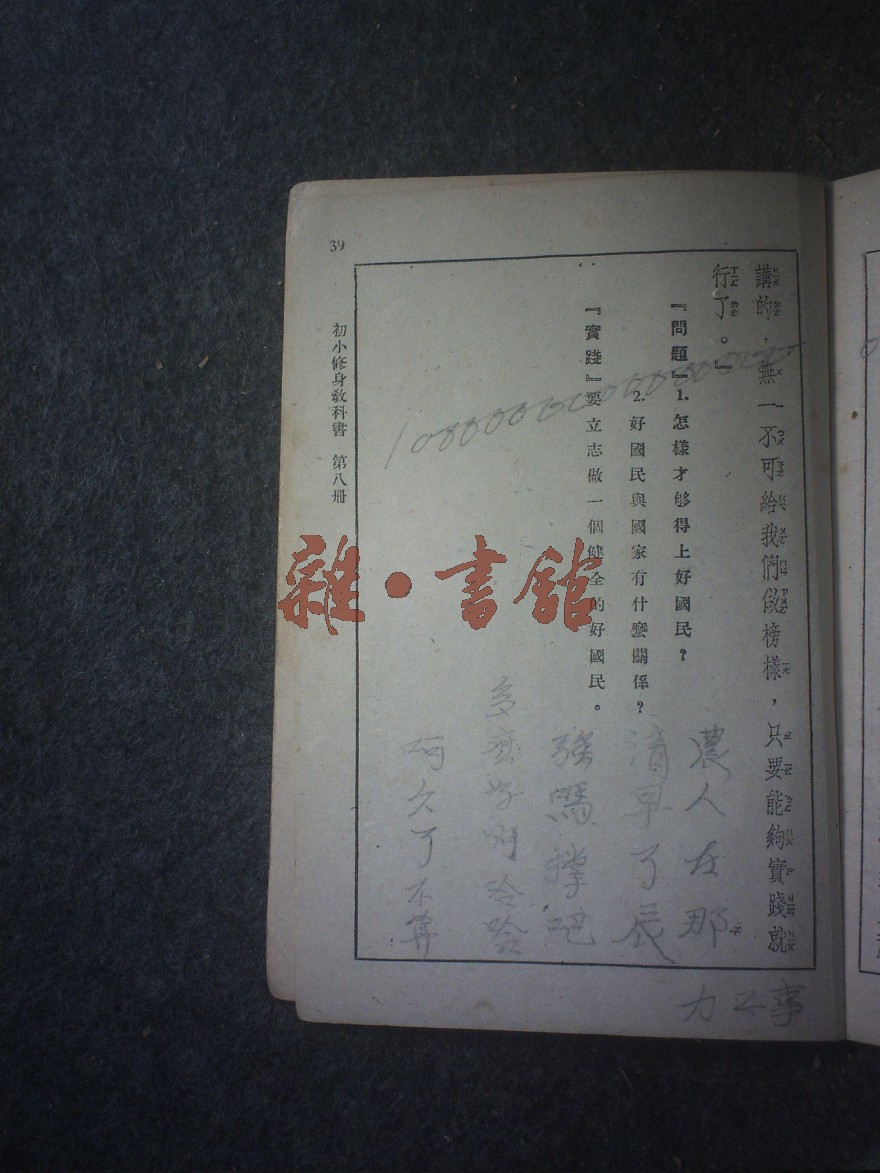 講的，無一不可給我們做榜樣，只要能夠實踐就
行了。』
『問題』1. 怎樣才够得上好國民？
2. 好國民與國家有什麼關係？
『實踐』要立志做一個健全的好國民。
初小修身教科書 第八冊
39
雜·書館
農人在那
清早了辰